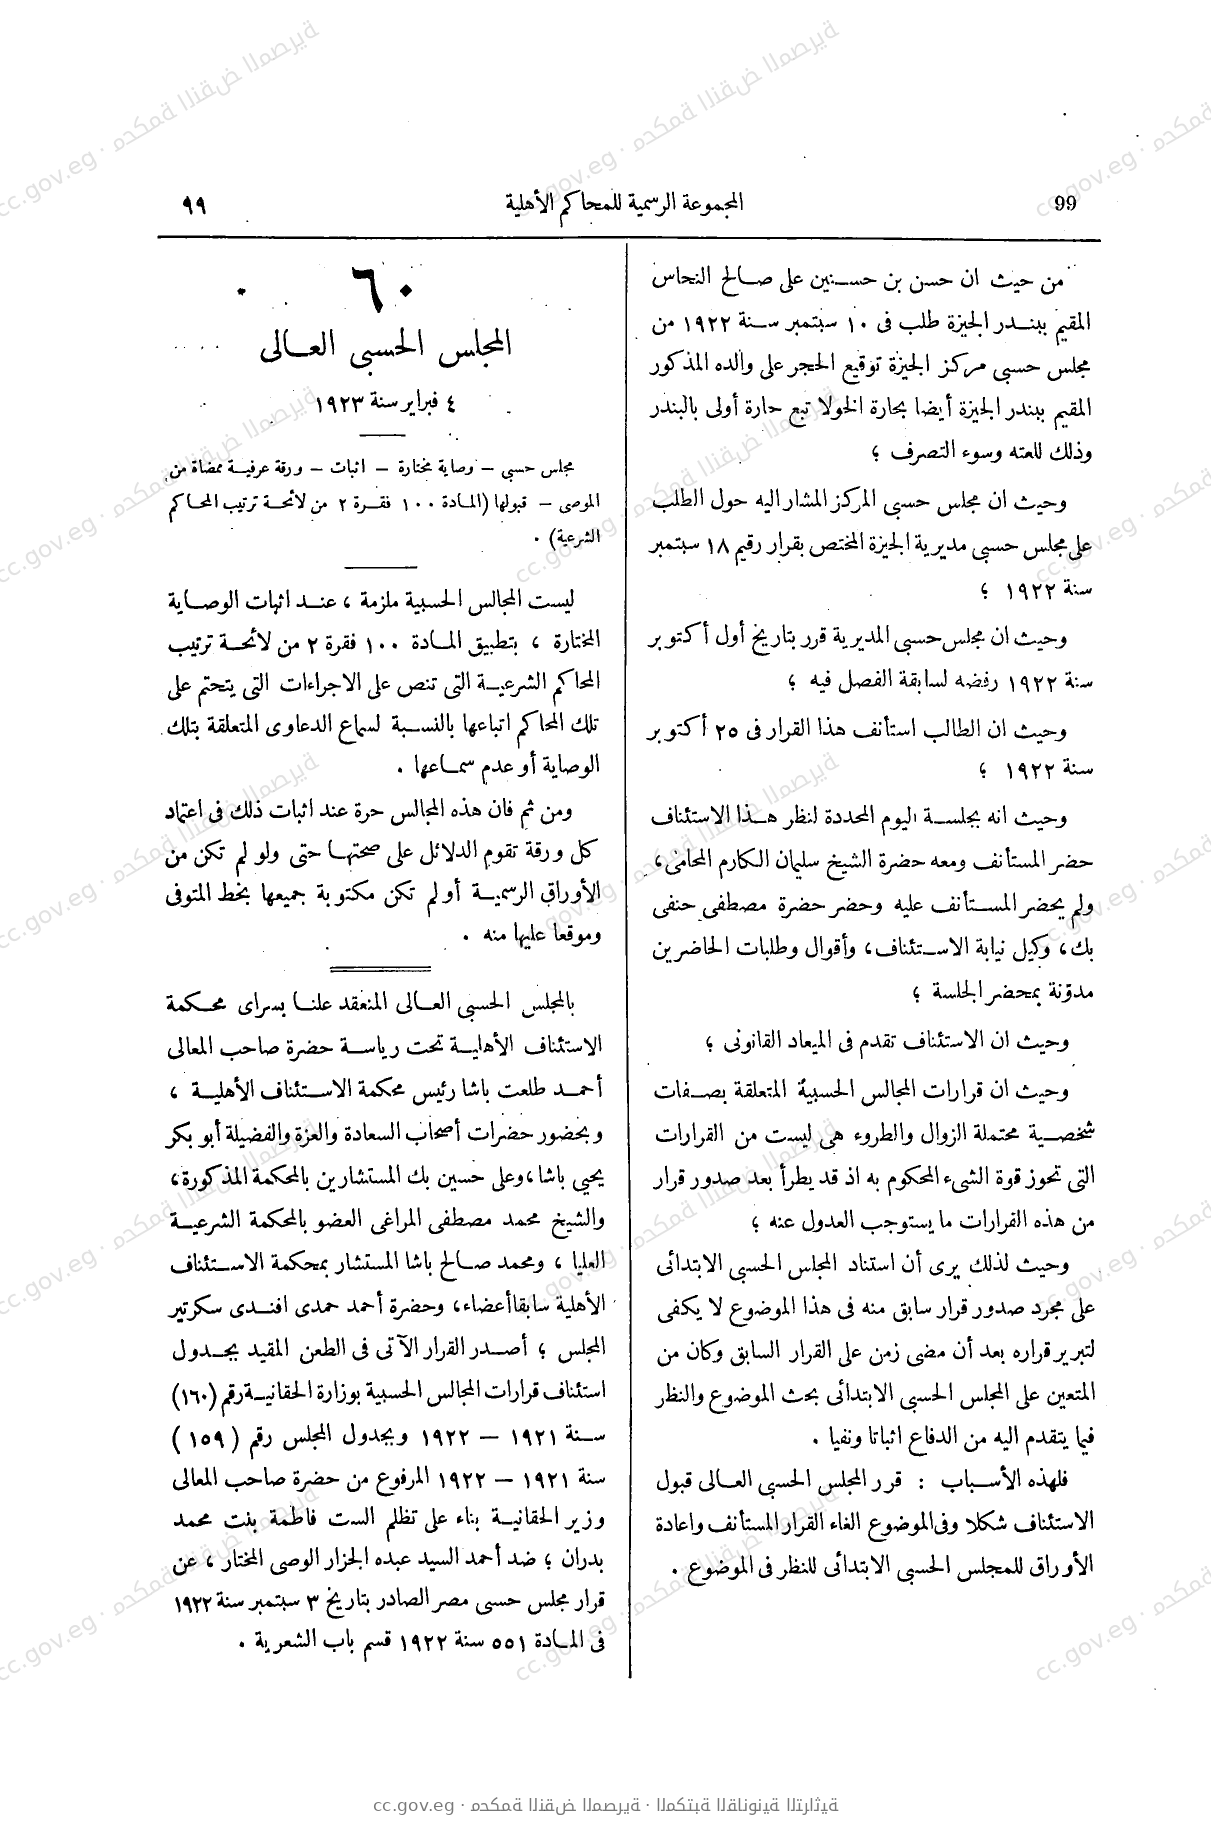 99
المجموعة الرسمية للمحاكم الأهلية
٩٩
من حيث ان حسن بن حسنين على صالح النحاس
المقيم ببندر الجيزة طلب فى ١٠ سبتمبر سنة ١٩٢٢ من
مجلس حسبى مركز الجيزة توقيع الحجر على والده المذكور
المقيم ببندر الجيزة أيضا بحارة الخولا تبع حارة أولى بالبندر
وذلك للعته وسوء التصرف ؛
وحيث ان مجلس حسبى المركز المشار اليه حول الطلب
على مجلس حسبى مديرية الجيزة المختص بقرار رقيم ١٨ سبتمبر
سنة ١٩٢٢ ؛
وحيث ان مجلس حسبى المديرية قرر بتاريخ أول أكتوبر
سنة ١٩٢٢ رفضه لسابقة الفصل فيه ؛
وحيث ان الطالب استأنف هذا القرار فى ٢٥ أكتوبر
سنة ١٩٢٢ ؛
وحيث انه بجلسة اليوم المحددة لنظر هذا الاستئناف
حضر المستأنف ومعه حضرة الشيخ سليمان الكارم المحامى،
ولم يحضر المستأنف عليه وحضر حضرة مصطفى حنفى
بك، وكيل نيابة الاستئناف، وأقوال وطلبات الحاضرين
مدوّنة بمحضر الجلسة ؛
وحيث ان الاستئناف تقدم فى الميعاد القانونى ؛
وحيث ان قرارات المجالس الحسبية المتعلقة بصفات
شخصية محتملة الزوال والطروء هى ليست من القرارات
التى تحوز قوة الشىء المحكوم به اذ قد يطرأ بعد صدور قرار
من هذه القرارات ما يستوجب العدول عنه ؛
وحيث لذلك يرى أن استناد المجلس الحسبى الابتدائى
على مجرد صدور قرار سابق منه فى هذا الموضوع لا يكفى
لتبرير قراره بعد أن مضى زمن على القرار السابق وكان من
المتعين على المجلس الحسبى الابتدائى بحث الموضوع والنظر
فيما يتقدم اليه من الدفاع اثباتا ونفيا .
فلهذه الأسباب : قرر المجلس الحسبى العالى قبول
الاستئناف شكلا وفى الموضوع الغاء القرار المستأنف واعادة
الأوراق للمجلس الحسبى الابتدائى للنظر فى الموضوع .
٦٠
المجلس الحسبى العالى
٤ فبراير سنة ١٩٢٣
مجلس حسبى — وصاية مختارة — اثبات — ورقة عرفية ممضاة من
الموصى — قبولها (المادة ١٠٠ فقرة ٢ من لائحة ترتيب المحاكم
الشرعية) .
ليست المجالس الحسبية ملزمة ، عند اثبات الوصاية
المختارة ، بتطبيق المادة ١٠٠ فقرة ٢ من لائحة ترتيب
المحاكم الشرعية التى تنص على الاجراءات التى يتحتم على
تلك المحاكم اتباعها بالنسبة لسماع الدعاوى المتعلقة بتلك
الوصاية أو عدم سماعها .
ومن ثم فان هذه المجالس حرة عند اثبات ذلك فى اعتماد
كل ورقة تقوم الدلائل على صحتها حتى ولو لم تكن من
الأوراق الرسمية أو لم تكن مكتوبة جميعها بخط المتوفى
وموقعا عليها منه .
بالمجلس الحسبى العالى المنعقد علنا بسراى محكمة
الاستئناف الأهلية تحت رياسة حضرة صاحب المعالى
أحمد طلعت باشا رئيس محكمة الاستئناف الأهلية ،
وبحضور حضرات أصحاب السعادة والعزة والفضيلة أبو بكر
يحيى باشا، وعلى حسين بك المستشارين بالمحكمة المذكورة،
والشيخ محمد مصطفى المراغى العضو بالمحكمة الشرعية
العليا ، ومحمد صالح باشا المستشار بمحكمة الاستئناف
الأهلية سابقا أعضاء، وحضرة أحمد حمدى افندى سكرتير
المجلس ؛ أصدر القرار الآتى فى الطعن المقيد بجدول
استئناف قرارات المجالس الحسبية بوزارة الحقانية رقم (١٦٠)
سنة ١٩٢١ — ١٩٢٢ وبجدول المجلس رقم (١٥٩)
سنة ١٩٢١ — ١٩٢٢ المرفوع من حضرة صاحب المعالى
وزير الحقانية بناء على تظلم الست فاطمة بنت محمد
بدران ؛ ضد أحمد السيد عبده الجزار الوصى المختار ، عن
قرار مجلس حسبى مصر الصادر بتاريخ ٣ سبتمبر سنة ١٩٢٢
فى المادة ٥٥١ سنة ١٩٢٢ قسم باب الشعرية .
cc.gov.eg · محكمة النقض المصرية · المكتبة القانونية التراثية